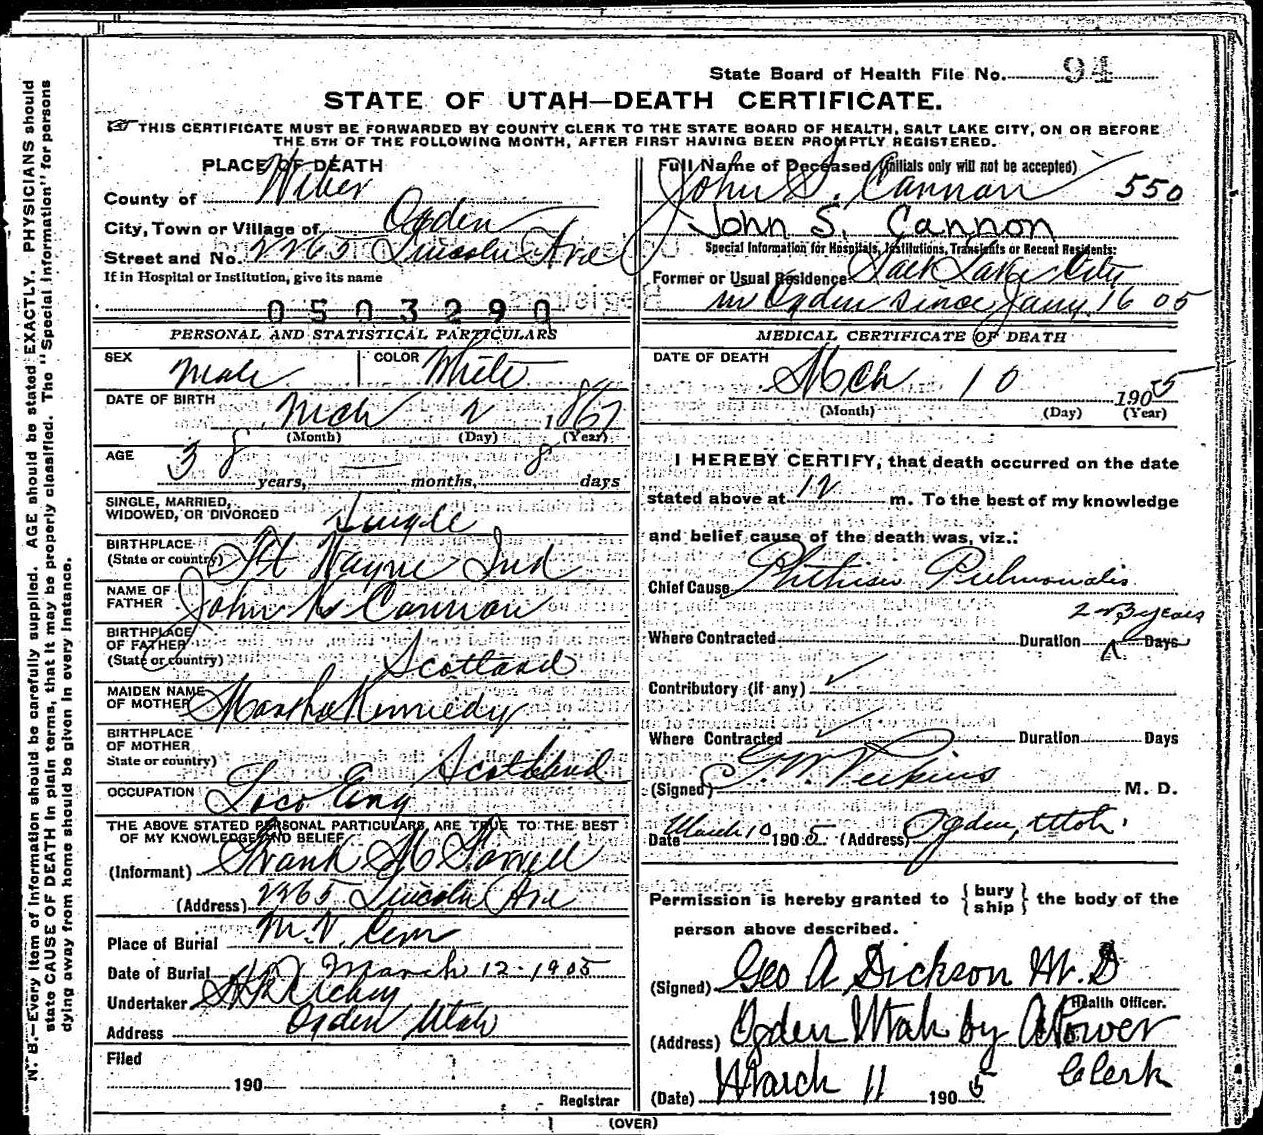 State Board of Health File No. 94
STATE OF UTAH—DEATH CERTIFICATE.
THIS CERTIFICATE MUST BE FORWARDED BY COUNTY CLERK TO THE STATE BOARD OF HEALTH, SALT LAKE CITY, ON OR BEFORE
THE 5TH OF THE FOLLOWING MONTH, AFTER FIRST HAVING BEEN PROMPTLY REGISTERED.
N. B.—Every item of information should be carefully supplied. AGE should be stated EXACTLY. PHYSICIANS should
state CAUSE OF DEATH in plain terms, that it may be properly classified. The "Special Information" for persons
dying away from home should be given in every instance.
PLACE OF DEATH
County of Weber
City, Town or Village of Ogden
Street and No. 2265 Lincoln Ave
If in Hospital or Institution, give its name
0503290
PERSONAL AND STATISTICAL PARTICULARS
SEX Male COLOR White
DATE OF BIRTH Mch 2 1867
(Month) (Day) (Year)
AGE
38 years, — months, 8 days
SINGLE, MARRIED,
WIDOWED, OR DIVORCED Single
BIRTHPLACE
(State or country) Ft Wayne Ind
NAME OF
FATHER John Cannon
BIRTHPLACE
OF FATHER
(State or country) Scotland
MAIDEN NAME
OF MOTHER Martha Kennedy
BIRTHPLACE
OF MOTHER
State or country) Scotland
OCCUPATION Loco Eng
THE ABOVE STATED PERSONAL PARTICULARS ARE TRUE TO THE BEST
OF MY KNOWLEDGE AND BELIEF
(Informant) Frank
(Address) 2265 Lincoln Ave
Place of Burial Mt. V. Cem
Date of Burial March 12 - 1905
Undertaker
Address Ogden Utah
Filed
190
Registrar
Full Name of Deceased (Initials only will not be accepted)
John S. Cannon 550
John S. Cannon
Special Information for Hospitals, Institutions, Transients or Recent Residents:
Former or Usual Residence Salt Lake City
in Ogden since Jany 16 05
MEDICAL CERTIFICATE OF DEATH
DATE OF DEATH Mch 10 1905
(Month) (Day) (Year)
I HEREBY CERTIFY, that death occurred on the date
stated above at 12 m. To the best of my knowledge
and belief cause of the death was, viz.:
Chief Cause Phthisis Pulmonalis
2 or 3 years
Where Contracted Duration Days
Contributory (if any) ✓
Where Contracted ✓ Duration Days
(Signed) Perkins M. D.
Date March 10 1905 (Address) Ogden, Utah.
Permission is hereby granted to { bury ship } the body of the
person above described.
(Signed) Geo A Dickson M. D
Health Officer.
(Address) Ogden Utah by A Power
Clerk
(Date) March 11 1905
(OVER)